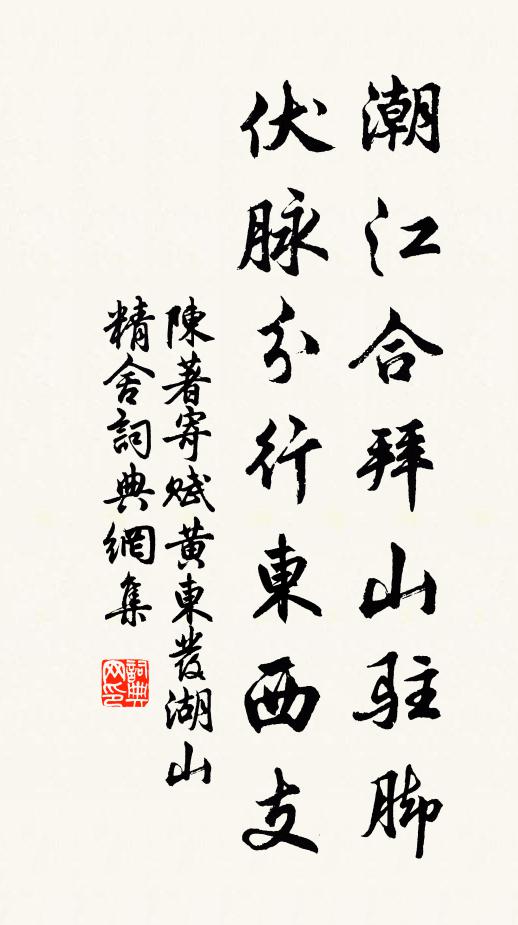 潮江合拜山駐脚
伏脉分行東西支
陳著寄賦黄東發湖山
精舍詞典網集
詞典网印